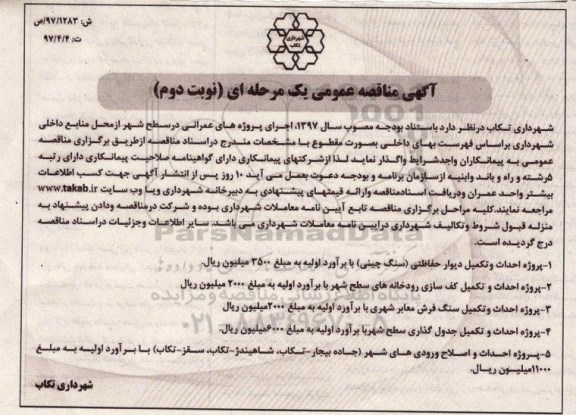 ش: ۹۷/۱۲۸۳/ص
ت: ۹۷/۴/۴
شهرداری
تکاب
آگهی مناقصه عمومی یک مرحله ای (نوبت دوم)
شهرداری تکاب درنظر دارد باستناد بودجه مصوب سال ۱۳۹۷، اجرای پروژه های عمرانی درسطح شهر ازمحل منابع داخلی
شهرداری براساس فهرست بهای داخلی بصورت مقطوع با مشخصات مندرج دراسناد مناقصه ازطریق برگزاری مناقصه
عمومی به پیمانکاران واجدشرایط واگذار نماید لذا ازشرکتهای پیمانکاری دارای گواهینامه صلاحیت پیمانکاری دارای رتبه
۵رشته و راه و باند وابنیه ازسازمان برنامه و بودجه دعوت بعمل می آید ۱۰ روز پس از انتشار آگهی جهت کسب اطلاعات
بیشتر واحد عمران ودریافت اسنادمناقصه وارائه قیمتهای پیشنهادی به دبیرخانه شهرداری ویا وب سایت www.takab.ir
مراجعه نمایند.کلیه مراحل برگزاری مناقصه تابع آیین نامه معاملات شهرداری بوده و شرکت درمناقصه ودادن پیشنهاد به
منزله قبول شروط وتکالیف شهرداری درایین نامه معاملات شهرداری می باشد. سایر اطلاعات وجزئیات دراسناد مناقصه
درج گردیده است.
۱-پروژه احداث وتکمیل دیوار حفاظتی (سنگ چینی) با برآورد اولیه به مبلغ ۳۵۰۰ میلیون ریال.
۲-پروژه احداث و تکمیل کف سازی رودخانه های سطح شهر با برآورد اولیه به مبلغ ۲۰۰۰ میلیون ریال
۳-پروژه احداث وتکمیل سنگ فرش معابر شهری با برآورد اولیه به مبلغ ۲۰۰۰میلیون ریال.
۴-پروژه احداث و تکمیل جدول گذاری سطح شهربا برآورد اولیه به مبلغ ۶۰۰۰میلیون ریال.
۵-پروژه احداث و اصلاح ورودی های شهر (جاده بیجار-تکاب، شاهیندژ-تکاب، سقز-تکاب) با برآورد اولیه به مبلغ
۱۱۰۰۰میلیون ریال.
شهرداری تکاب
ParsNamadData